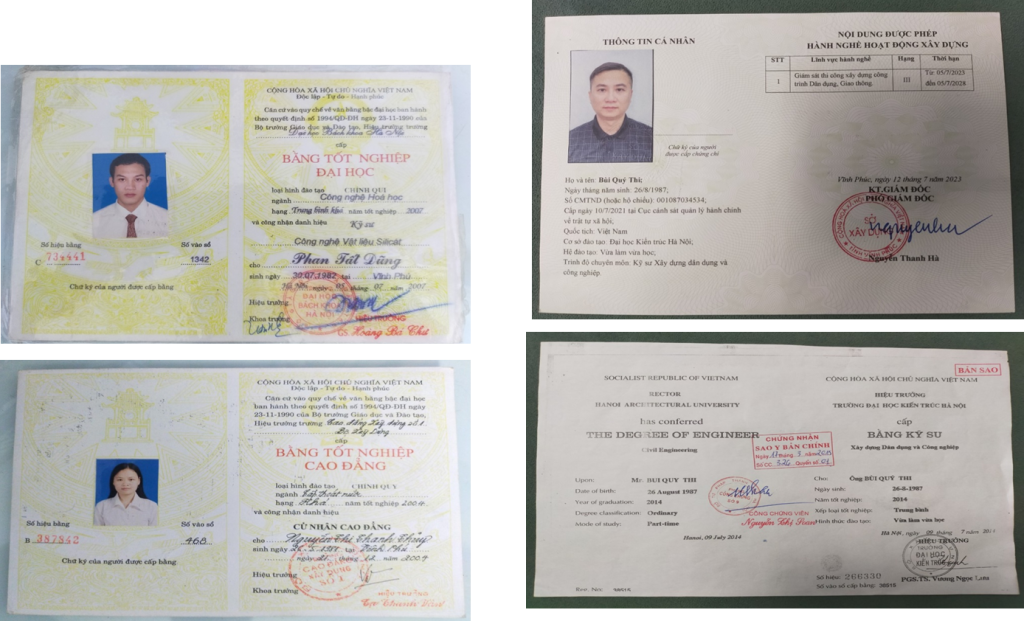 CỘNG HÒA XÃ HỘI CHỦ NGHĨA VIỆT NAM
Độc lập - Tự do - Hạnh phúc
Căn cứ vào quy chế về văn bằng bậc đại học ban hành
theo quyết định số 1994/QĐ-ĐH ngày 23-11-1990 của
Bộ trưởng Giáo dục và Đào tạo, Hiệu trưởng trường
Đại học Bách khoa Hà Nội
cấp
BẰNG TỐT NGHIỆP
ĐẠI HỌC
loại hình đào tạo CHÍNH QUI
ngành Công nghệ Hoá học
hạng Trung bình khá năm tốt nghiệp 2007
và công nhận danh hiệu Kỹ sư
Công nghệ Vật liệu Silicat
cho Phan Tất Dũng
sinh ngày 30.07.1982 tại Vĩnh Phú
Hà Nội, ngày 05 tháng 07 năm 2007
Hiệu trưởng
HIỆU TRƯỞNG
Khoa trưởng
ĐẠI HỌC
BÁCH KHOA
HÀ NỘI
Hoàng Bá Chư
Số hiệu bằng
Số vào sổ
C
1342
Chữ ký của người được cấp bằng
THÔNG TIN CÁ NHÂN
Chữ ký của người
được cấp chứng chỉ
Họ và tên: Bùi Quý Thi;
Ngày tháng năm sinh: 26/8/1987;
Số CMTND (hoặc hộ chiếu): 001087034534;
Cấp ngày 10/7/2021 tại Cục cảnh sát quản lý hành chính
về trật tự xã hội,
Quốc tịch: Việt Nam
Cơ sở đào tạo: Đại học Kiến trúc Hà Nội;
Hệ đào tạo: Vừa làm vừa học;
Trình độ chuyên môn: Kỹ sư Xây dựng dân dụng và
công nghiệp.
NỘI DUNG ĐƯỢC PHÉP
HÀNH NGHỀ HOẠT ĐỘNG XÂY DỰNG
STT Lĩnh vực hành nghề Hạng Thời hạn
1 Giám sát thi công xây dựng công trình Dân dụng, Giao thông. III Từ 05/7/2023 đến 05/7/2028
Vĩnh Phúc, ngày 12 tháng 7 năm 2023
KT.GIÁM ĐỐC
PHÓ GIÁM ĐỐC
SỞ
XÂY DỰNG
Nguyễn Thanh Hà
CỘNG HÒA XÃ HỘI CHỦ NGHĨA VIỆT NAM
Độc lập - Tự do - Hạnh phúc
Căn cứ vào quy chế về văn bằng bậc đại học
ban hành theo quyết định số 1994/QĐ-ĐH ngày
23-11-1990 của Bộ trưởng Giáo dục và Đào tạo,
Hiệu trưởng trường Cao đẳng Xây dựng số 1
Bộ Xây dựng
cấp
BẰNG TỐT NGHIỆP
CAO ĐẲNG
loại hình đào tạo CHÍNH QUY
ngành Cấp thoát nước
hạng Khá năm tốt nghiệp 2004
và công nhận danh hiệu
CỬ NHÂN CAO ĐẲNG
cho Nguyễn Thị Thanh Thủy
sinh ngày tại Vĩnh Phú
ngày tháng 12 năm 2004
Hiệu trưởng
Khoa trưởng
CAO ĐẲNG
XÂY DỰNG
SỐ 1
HIỆU TRƯỞNG
Số hiệu bằng
Số vào sổ
B 387862
468
Chữ ký của người được cấp bằng
BẢN SAO
SOCIALIST REPUBLIC OF VIETNAM
RECTOR
HANOI ARCHITECTURAL UNIVERSITY
has conferred
THE DEGREE OF ENGINEER
Civil Engineering
Upon: Mr. BUI QUY THI
Date of birth: 26 August 1987
Year of graduation: 2014
Degree classification: Ordinary
Mode of study: Part-time
Hanoi, 09 July 2014
CHỨNG NHẬN
SAO Y BẢN CHÍNH
CÔNG CHỨNG VIÊN
CỘNG HÒA XÃ HỘI CHỦ NGHĨA VIỆT NAM
HIỆU TRƯỞNG
TRƯỜNG ĐẠI HỌC KIẾN TRÚC HÀ NỘI
cấp
BẰNG KỸ SƯ
Xây dựng Dân dụng và Công nghiệp
Cho: Ông BÙI QUÝ THI
Ngày sinh: 26-8-1987
Năm tốt nghiệp: 2014
Xếp loại tốt nghiệp: Trung bình
Hình thức đào tạo: Vừa làm vừa học
Hà Nội, ngày 09 tháng 7 năm 2014
HIỆU TRƯỞNG
TRƯỜNG
ĐẠI HỌC
KIẾN TRÚC
Số hiệu: 266330
Số vào sổ cấp bằng:
PGS.TS. Vương Ngọc Lưu